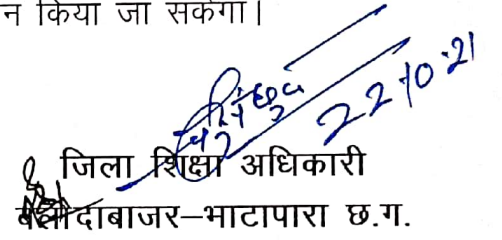 न किया जा सकेगा।
22.10.21
जिला शिक्षा अधिकारी
बलौदाबाजर–भाटापारा छ.ग.